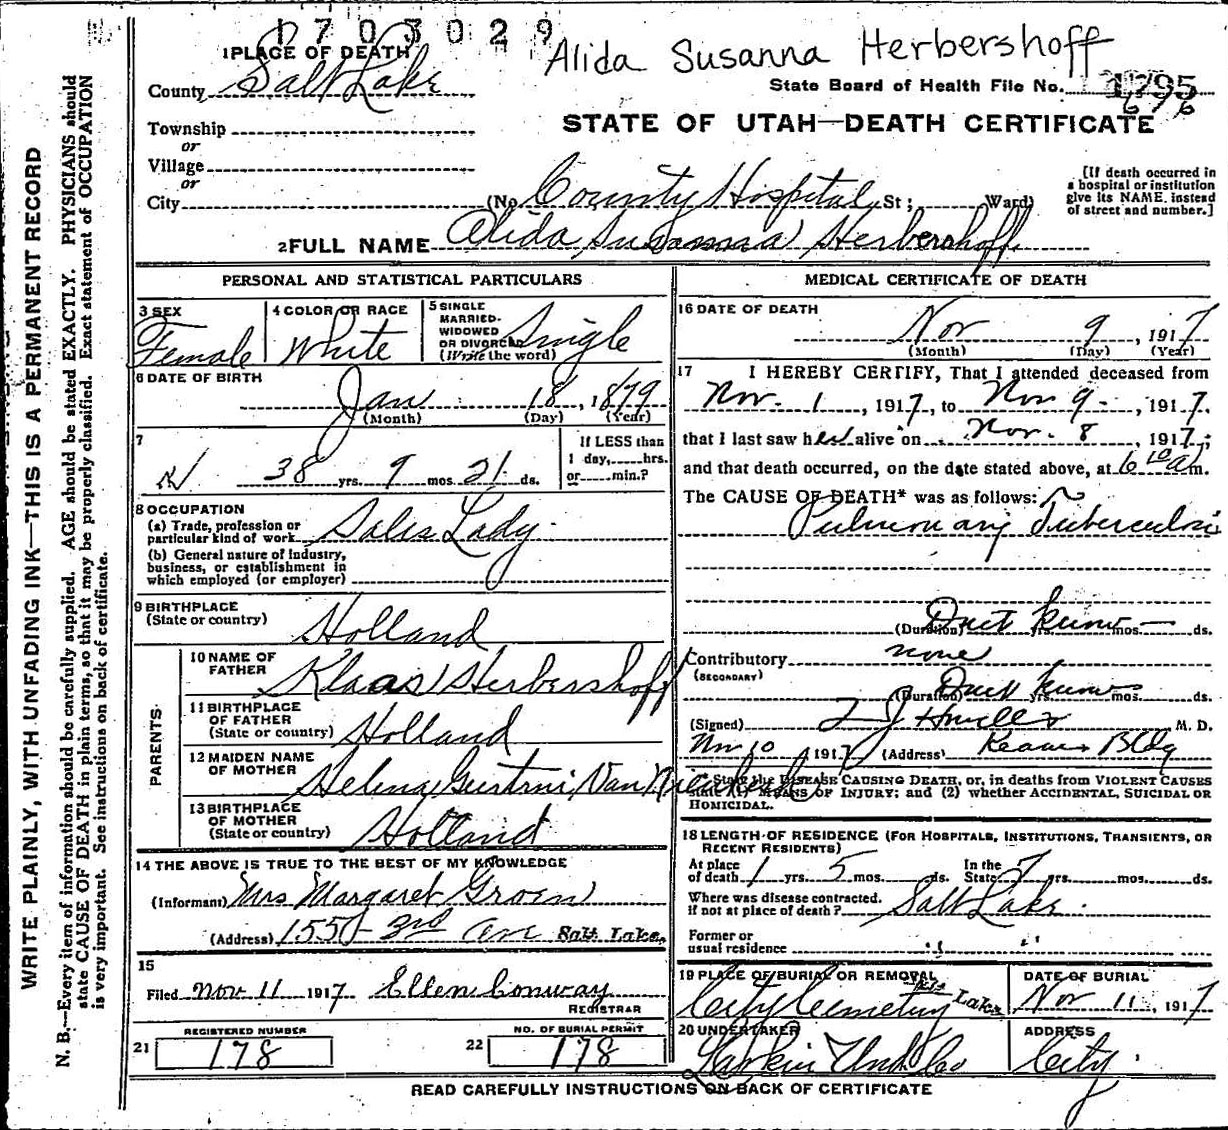 1703029
Alida Susanna Herbershoff
1 PLACE OF DEATH
County Salt Lake
State Board of Health File No. 1795
676
Township
or
Village
or
City
STATE OF UTAH—DEATH CERTIFICATE
(No. County Hospital St; Ward)
[If death occurred in
a hospital or institution
give its NAME, instead
of street and number.]
2 FULL NAME Alida Susanna Herbershoff
PERSONAL AND STATISTICAL PARTICULARS
3 SEX
Female
4 COLOR OR RACE
White
5 SINGLE
MARRIED-
WIDOWED
OR DIVORCED
(Write the word)
Single
6 DATE OF BIRTH
Jan 18, 1879
(Month) (Day) (Year)
7
38 yrs. 9 mos. 21 ds.
If LESS than
1 day,....hrs.
or....min.?
8 OCCUPATION
(a) Trade, profession or
particular kind of work Sales Lady
(b) General nature of Industry,
business, or establishment in
which employed (or employer)
9 BIRTHPLACE
(State or country)
Holland
PARENTS
10 NAME OF
FATHER
Klaas Herbershoff
11 BIRTHPLACE
OF FATHER
(State or country)
Holland
12 MAIDEN NAME
OF MOTHER
Helena Van
13 BIRTHPLACE
OF MOTHER
(State or country)
Holland
14 THE ABOVE IS TRUE TO THE BEST OF MY KNOWLEDGE
(Informant) Mrs Margaret Groen
(Address) 1550 - 3rd Ave Salt Lake
15
Filed Nov 11 1917 Ellen Conway
REGISTRAR
REGISTERED NUMBER
21 178
NO. OF BURIAL PERMIT
22 178
MEDICAL CERTIFICATE OF DEATH
16 DATE OF DEATH
Nov 9, 1917
(Month) (Day) (Year)
17 I HEREBY CERTIFY, That I attended deceased from
Nov. 1, 1917, to Nov 9., 1917.
that I last saw her alive on Nov. 8, 1917;
and that death occurred, on the date stated above, at 6 10 a m.
The CAUSE OF DEATH* was as follows:
Pulmonary Tuberculosis
(Duration) Don't know yrs. mos. ds.
Contributory none
(SECONDARY)
(Duration) Don't know yrs. mos. ds.
(Signed) M. D.
Nov 10 1917 (Address) Kearns Bldg
* State the DISEASE CAUSING DEATH, or, in deaths from VIOLENT CAUSES
MEANS OF INJURY; and (2) whether ACCIDENTAL, SUICIDAL OR
HOMICIDAL.
18 LENGTH OF RESIDENCE (FOR HOSPITALS, INSTITUTIONS, TRANSIENTS, OR
RECENT RESIDENTS)
At place
of death 1 yrs. 5 mos. ds.
In the
State 7 yrs. mos. ds.
Where was disease contracted.
if not at place of death? Salt Lake.
Former or
usual residence
19 PLACE OF BURIAL OR REMOVAL
City Cemetery Salt Lake
DATE OF BURIAL
Nov 11, 1917
20 UNDERTAKER
Larkin Und Co
ADDRESS
City.
READ CAREFULLY INSTRUCTIONS ON BACK OF CERTIFICATE
WRITE PLAINLY, WITH UNFADING INK—THIS IS A PERMANENT RECORD
N. B.—Every item of information should be carefully supplied. AGE should be stated EXACTLY. PHYSICIANS should
state CAUSE OF DEATH in plain terms, so that it may be properly classified. Exact statement of OCCUPATION
is very important. See instructions on back of certificate.